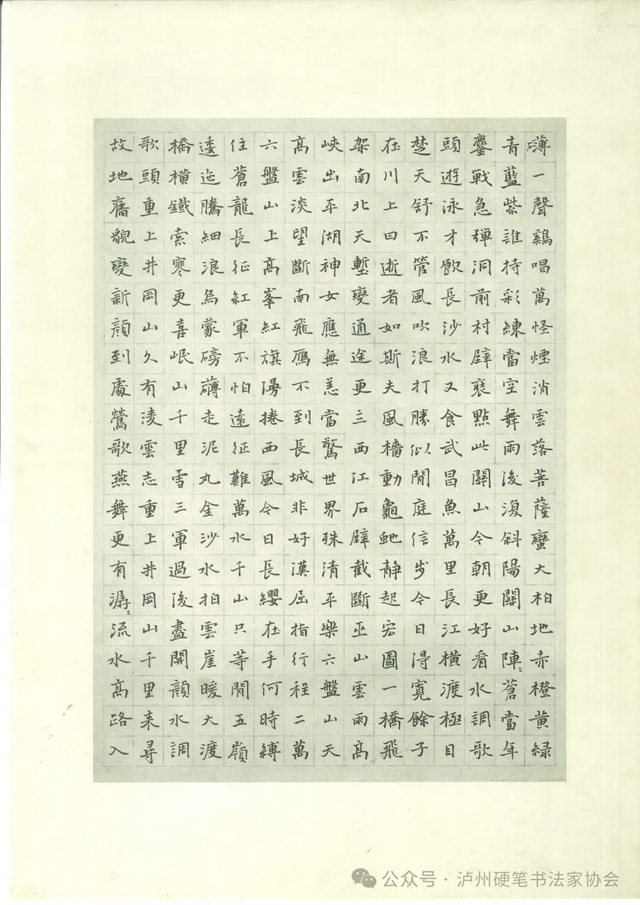 礴一聲鷄唱萬怪煙消雲落菩薩蠻大柏地赤橙黄緑
青藍紫誰持彩練當空舞雨後復斜陽關山陣〻蒼當年
鏖戰急彈洞前村壁裝點此關山今朝更好看水調歌
頭遊泳才飲長沙水又食武昌魚萬里長江橫渡極目
楚天舒不管風吹浪打勝似閒庭信步今日得寬餘子
在川上曰逝者如斯夫風檣動龜虵静起宏圖一橋飛
架南北天塹變通途更立西江石壁截斷巫山雲雨高
峽出平湖神女應無恙當驚世界殊清平樂六盤山天
高雲淡望斷南飛雁不到長城非好漢屈指行程二萬
六盤山上高峯紅旗漫捲西風今日長纓在手何時縛
住蒼龍長征紅軍不怕遠征難萬水千山只等閒五嶺
逶迤騰細浪烏蒙磅礴走泥丸金沙水拍雲崖暖大渡
橋橫鐵索寒更喜岷山千里雪三軍過後盡開顏水調
歌頭重上井岡山久有凌雲志重上井岡山千里来尋
故地舊貌變新顏到處鶯歌燕舞更有潺〻流水高路入
公众号·泸州硬笔书法家协会